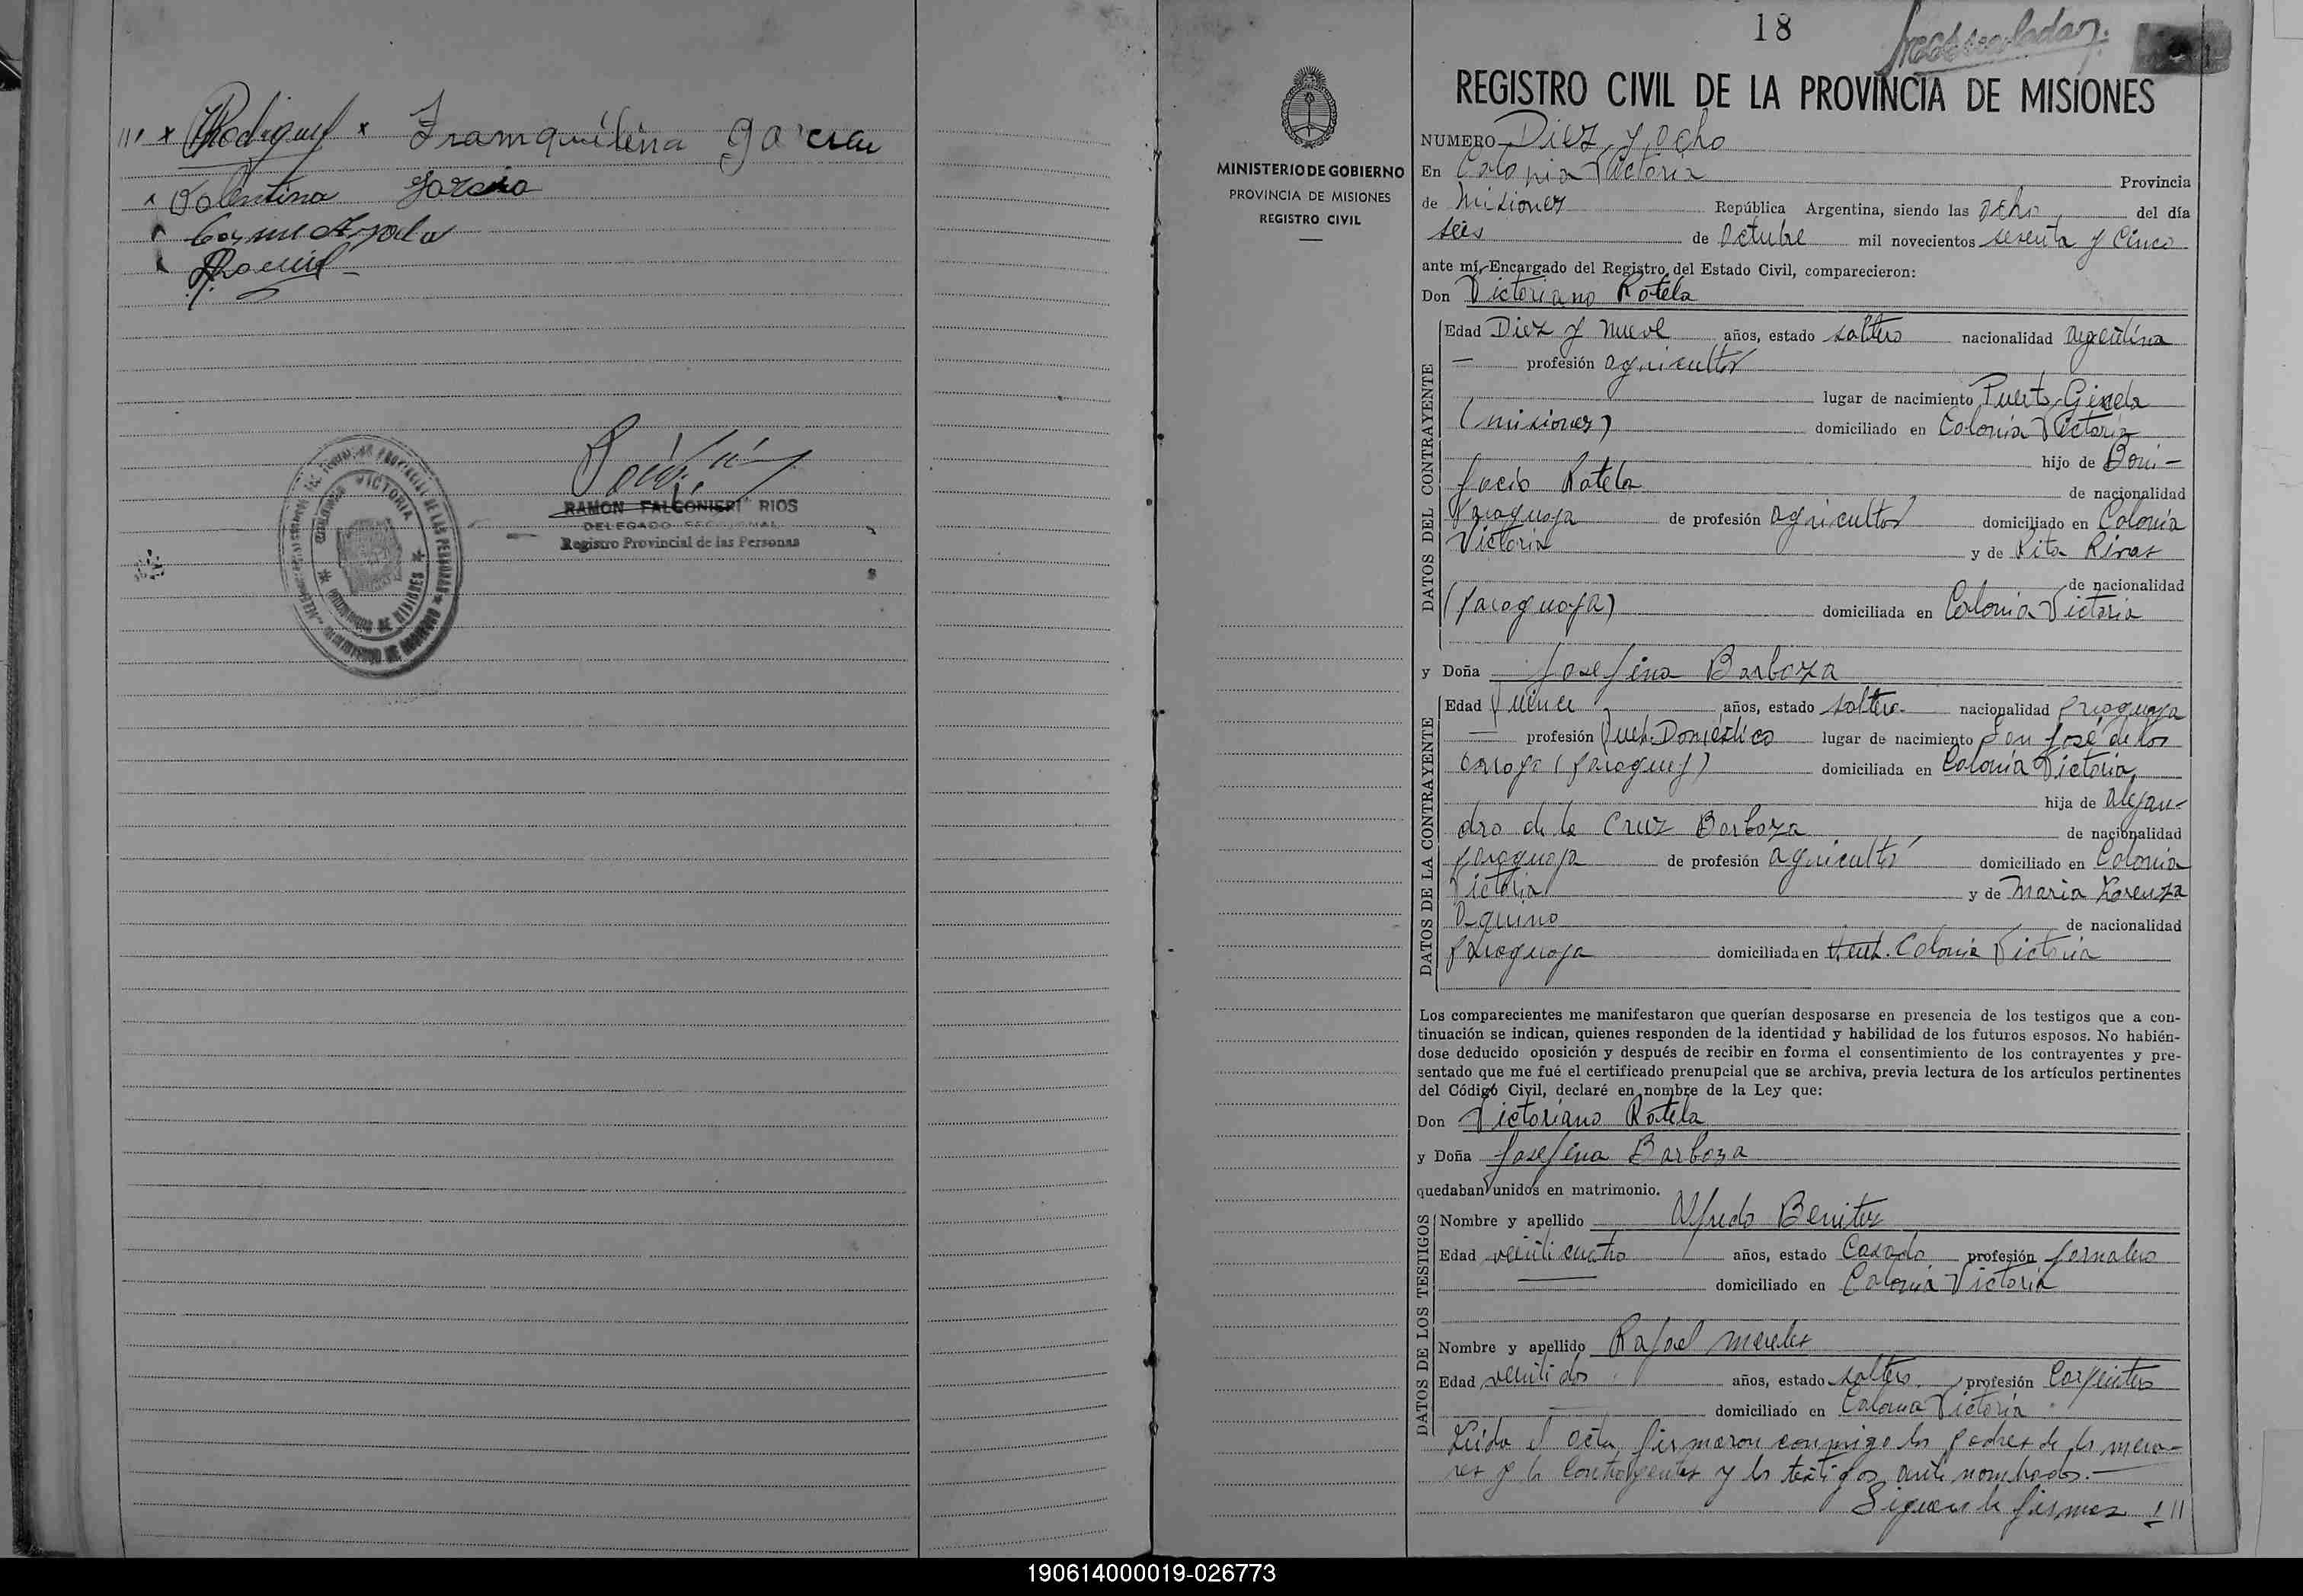 Rodriguez x Tramquilina garcia
Valentina garcia
RAMON FALCONIERI RIOS
DELEGADO SECCIONAL
Registro Provincial de las Personas
COLONIA VICTORIA
18
REGISTRO CIVIL DE LA PROVINCIA DE MISIONES
MINISTERIO DE GOBIERNO
PROVINCIA DE MISIONES
REGISTRO CIVIL
NUMERO Diez y ocho
En Colonia Victoria Provincia
de Misiones República Argentina, siendo las ocho del día
seis de Octubre mil novecientos sesenta y Cinco
ante mí, Encargado del Registro del Estado Civil, comparecieron:
Don Victoriano Rotela
DATOS DEL CONTRAYENTE
Edad Diez y nueve años, estado soltero nacionalidad argentina
— profesión agricultor
lugar de nacimiento Puerto Gisela
(misiones) domiciliado en Colonia Victoria
hijo de Boni-
facio Rotela de nacionalidad
Paraguaya de profesión agricultor domiciliado en Colonia
Victoria y de Rita Rivas
de nacionalidad
(paraguaya) domiciliada en Colonia Victoria
y Doña Josefina Barboza
DATOS DE LA CONTRAYENTE
Edad Quince años, estado soltera nacionalidad paraguaya
— profesión Queh. Doméstico lugar de nacimiento San José de los
arroyo (paraguay) domiciliada en Colonia Victoria,
hija de Alejan-
dro de la Cruz Barboza de nacionalidad
paraguaya de profesión agricultor domiciliado en Colonia
Victoria y de Maria Lorenza
Aquino de nacionalidad
paraguaya domiciliada en Colonia Victoria
Los comparecientes me manifestaron que querían desposarse en presencia de los testigos que a con-
tinuación se indican, quienes responden de la identidad y habilidad de los futuros esposos. No habién-
dose deducido oposición y después de recibir en forma el consentimiento de los contrayentes y pre-
sentado que me fué el certificado prenupcial que se archiva, previa lectura de los artículos pertinentes
del Código Civil, declaré en nombre de la Ley que:
Don Victoriano Rotela
y Doña Josefina Barboza
quedaban unidos en matrimonio.
DATOS DE LOS TESTIGOS
Nombre y apellido Alfredo Benitez
Edad veinticuatro años, estado Casado profesión Jornalero
domiciliado en Colonia Victoria
Nombre y apellido Rafael Mereles
Edad veintidos años, estado soltero profesión Carpintero
domiciliado en Colonia Victoria
Leida el acta, firmaron conmigo los padres de los meno-
res y los Contrayentes y los testigos ante nombrados.—
Siguen la firmas ///
190614000019-026773